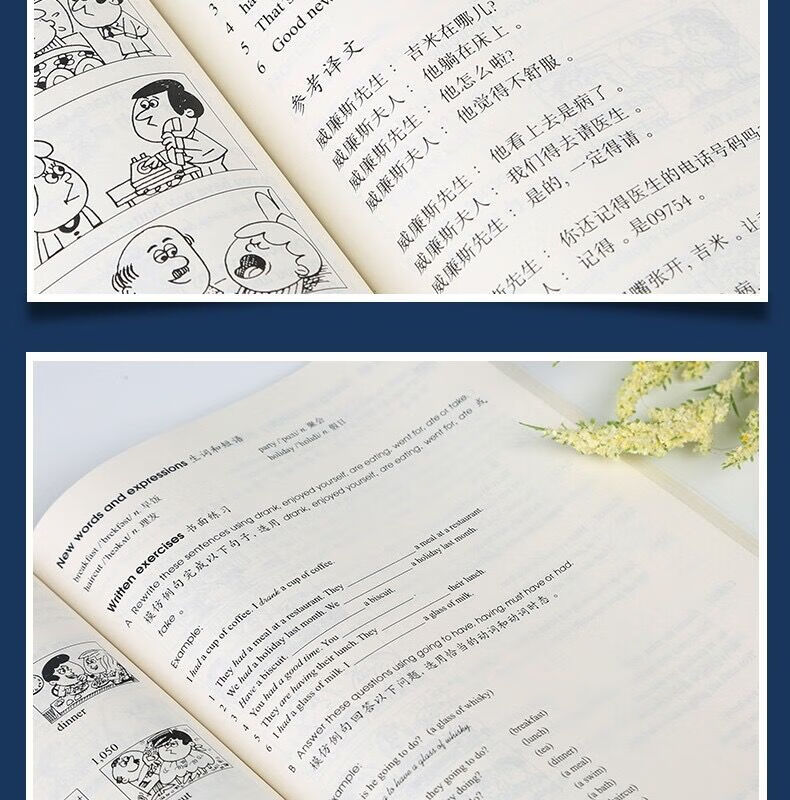 3
4 ha
5 That's
6 Good new
参考译文
威廉斯先生： 吉米在哪儿?
威廉斯夫人： 他躺在床上。
威廉斯先生： 他怎么啦?
威廉斯夫人： 他觉得不舒服。
威廉斯先生： 他看上去是病了。
威廉斯夫人： 我们得去请医生。
威廉斯先生： 是的, 一定得请。
斯先生： 你还记得医生的电话号码吗
人： 记得。是09754。
嘴张开, 吉米。让
病,
New words and expressions 生词和短语
breakfast /'brekfəst/ n. 早饭
haircut /'heəkʌt/ n. 理发
party /'pɑːti/ n. 聚会
holiday /'hɒlədi/ n. 假日
Written exercises 书面练习
A Rewrite these sentences using drank, enjoyed yourself, are eating, went for, ate or take.
模仿例句完成以下句子, 选用 drank, enjoyed yourself, are eating, went for, ate 或
take。
Example:
I had a cup of coffee. I drank a cup of coffee.
1 They had a meal at a restaurant. They ________ a meal at a restaurant.
2 We had a holiday last month. We ________ a holiday last month.
3 Have a biscuit. ________ a biscuit.
4 You had a good time. You ________.
5 They are having their lunch. They ________ their lunch.
6 I had a glass of milk. I ________ a glass of milk.
B Answer these questions using going to have, having, must have or had.
模仿例句回答以下问题, 选用恰当的动词和动词时态。
xample:
is he going to do? (a glass of whisky)
to have a glass of whisky.
they going to do? (breakfast)
doing? (lunch)
(tea)
(dinner)
(a meal)
(a swim)
(a bath)
haircut)
dinner
1,050